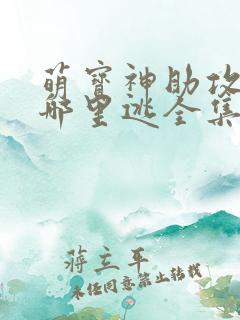 萌宝神助攻
哪里逃全集
蒋立平
未经同意禁止转载